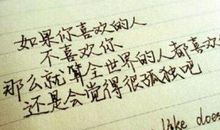 如果你喜欢的人
不喜欢你
那么就算全世界的人都喜欢
还是会觉得很孤独吧
like does